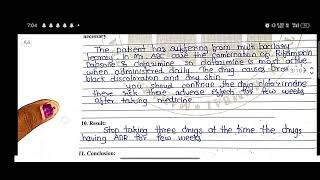 7:04
necessary
The patient has suffering from multi bacillary
leprosy. In Mr. ABC case the combination of Rifampicin
Dapsone & clofazimine so clofazimine is most active
when administered daily. The drug causes
black discoloration and dry skin.
you should continue the drug clofazimine
these adverse effects for few weeks
after taking medicine.
10. Result:
Stop taking three drugs at the time the drugs
having ADR for few weeks
11. Conclusion: